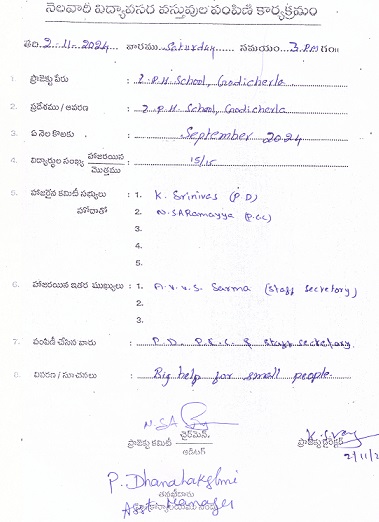 నెలవారీ విద్యావసర వస్తువుల పంపిణీ కార్యక్రమం
తేది. 2-11-2024 వారము Saturday సమయం 3 PM గం॥
1. ప్రాజెక్టు పేరు : Z.P.H School, Godicherla
2. ప్రదేశము / ఆవరణ : Z.P.H School, Godicherla
3. ఏ నెల కొఱకు : September 2024
4. విద్యార్థుల సంఖ్య హాజరయిన / మొత్తము : 15/15
5. హాజరైన కమిటీ సభ్యులు : 1. K. Srinivas (P D)
హోదాతో 2. N.SARamayya (P.C.C)
3.
4.
5.
6. హాజరయిన ఇతర ముఖ్యులు : 1. A.V.V.S. Sarma (Staff Secretary)
2.
3.
7. పంపిణీ చేసిన వారు : P.D. P.E.C. & Staff Secretary.
8. వివరణ / సూచనలు : Big help for small people
ప్రాజెక్టు కమిటీ చైర్మెన్, ఆడిటర్
ప్రాజెక్టు డైరెక్టర్
2/11/2
P. Dhanalakshmi
తనిఖీదారు
Asst Manager